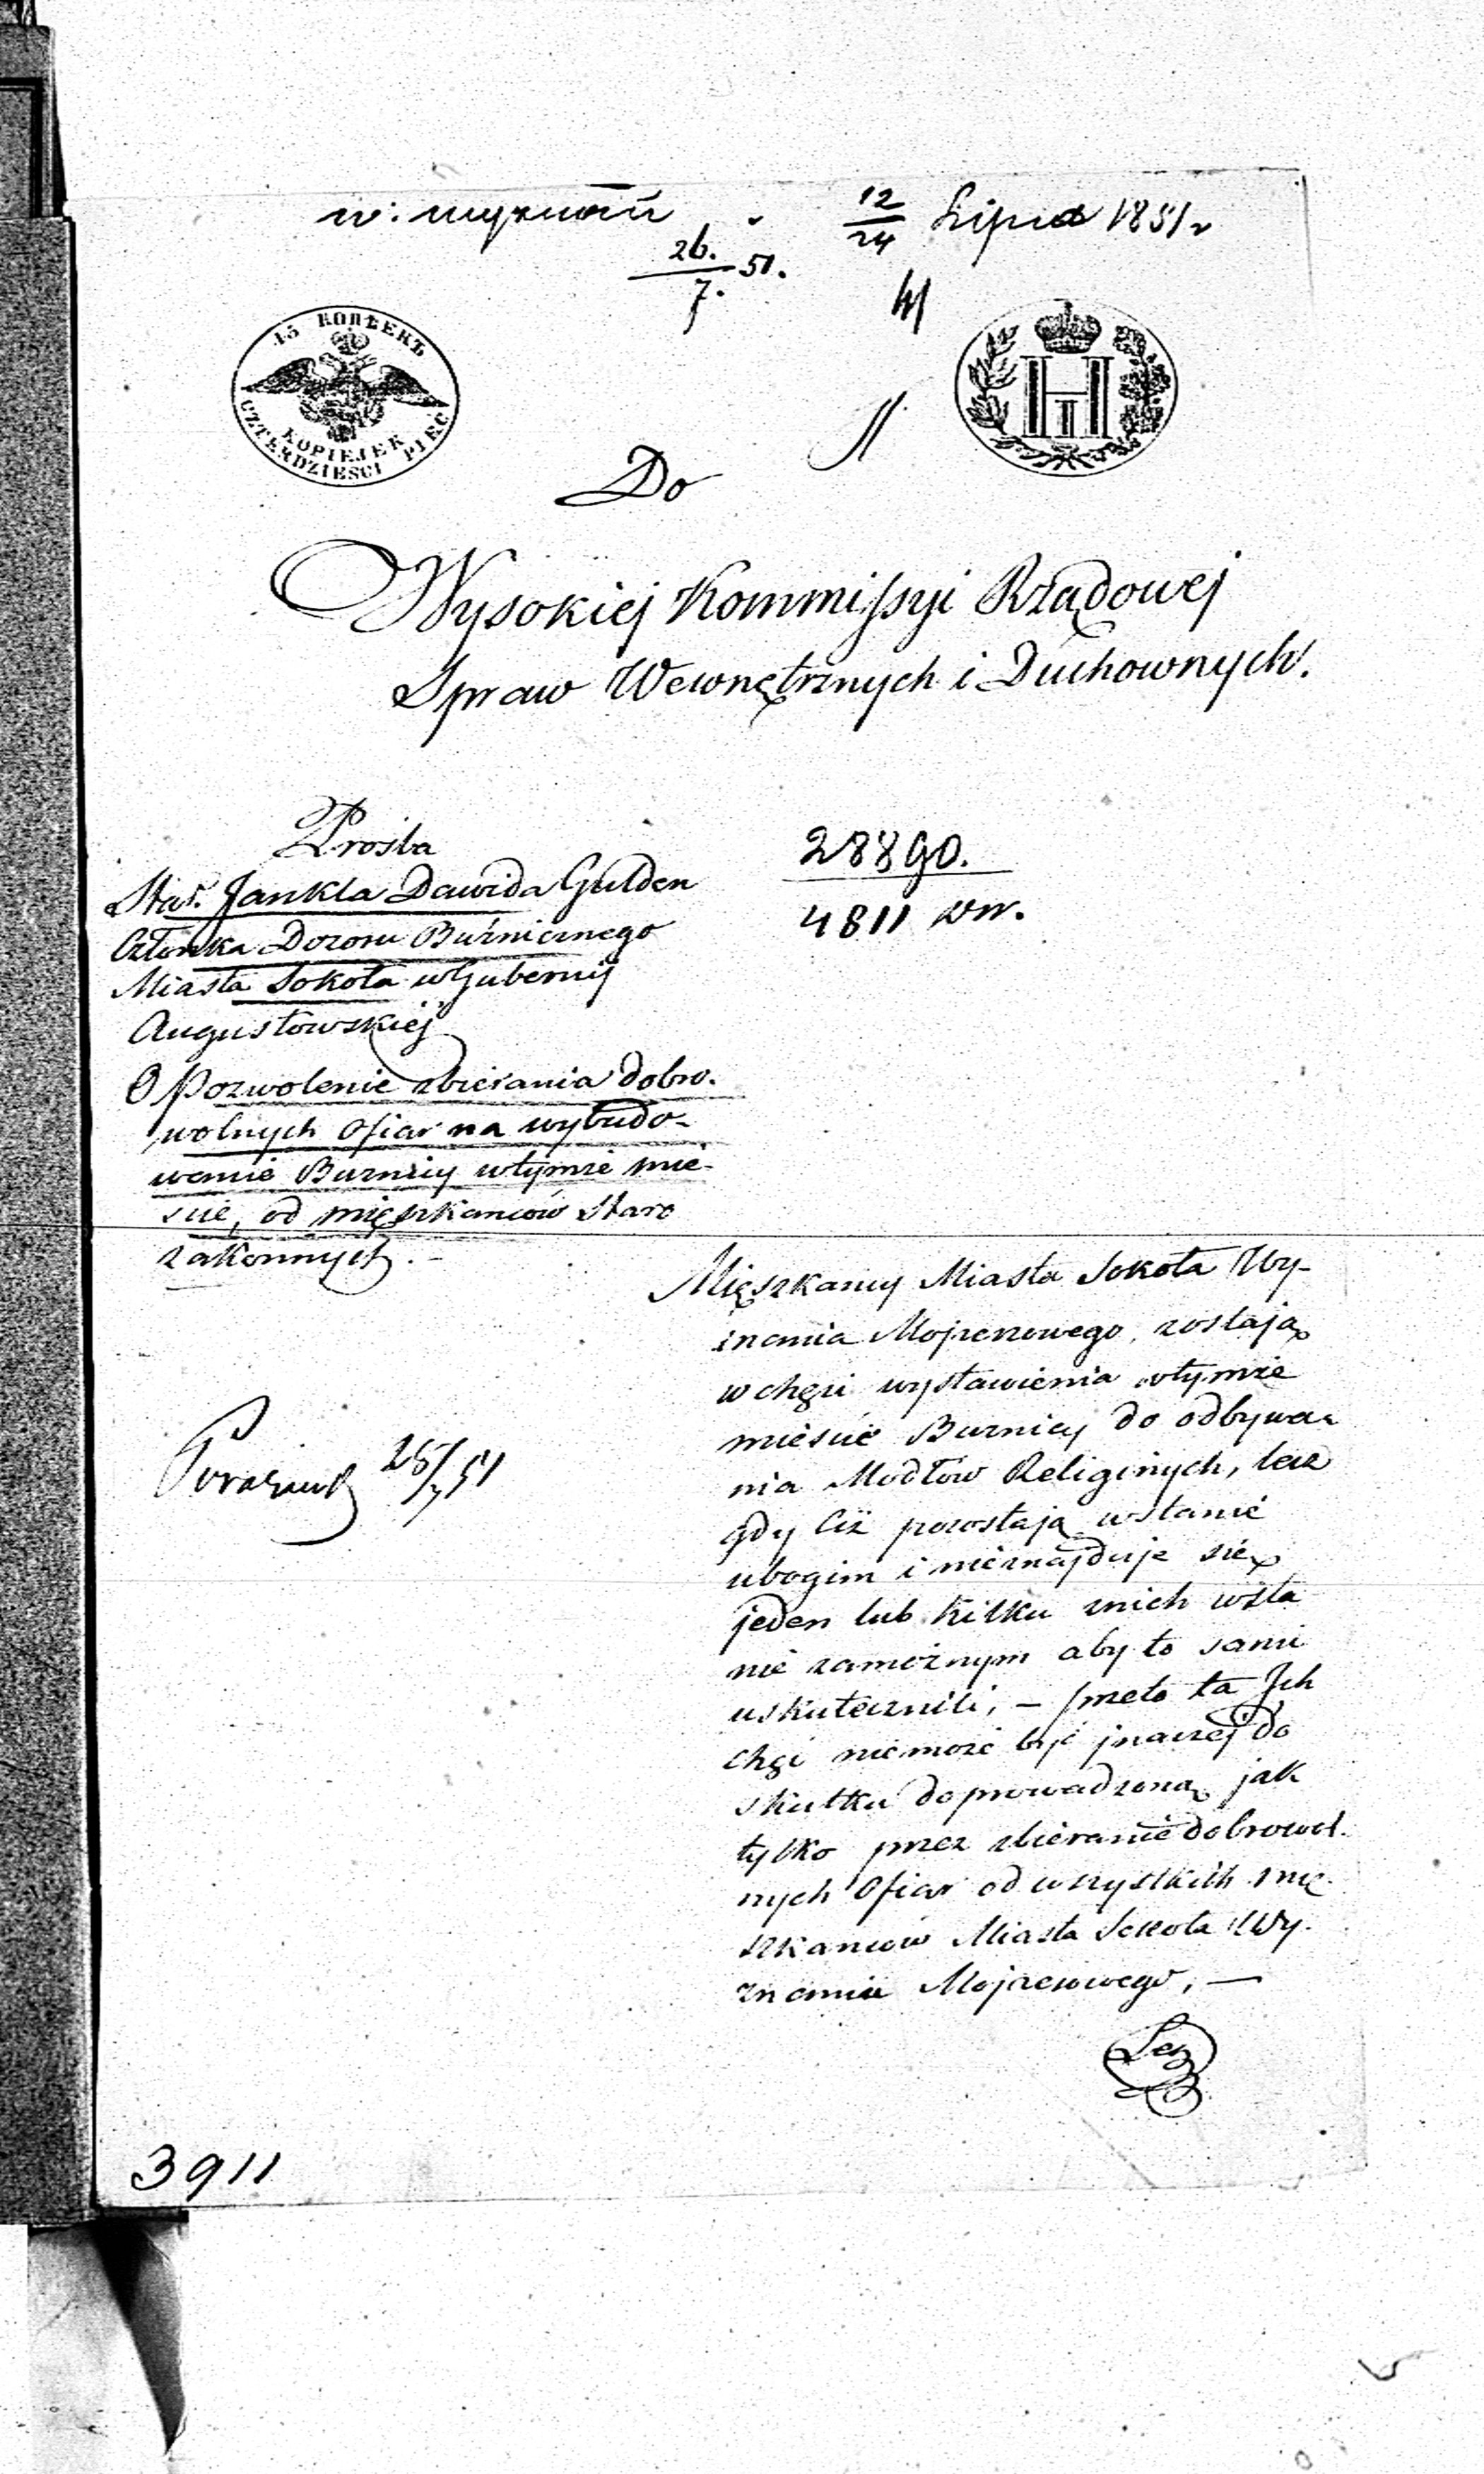 w: wyznań
12/24 Lipca 1851 r
26./7. 51.
45 КОПѢЕКЪ
KOPIEJEK
CZTERDZIESCI PIEC
Н I
Do
Wysokiej Kommissyi Rządowej
Spraw Wewnętrznych i Duchownych.
Prośba
Star. Jankla Dawida Gulden
Członka Dozoru Bużnicznego
Miasta Sokoła w Gubernij
Augustowskiej
O Pozwolenie zbierania dobro-
wolnych Ofiar na wybudo-
wanie Buznicy wtymże mie-
scie, od mięszkancow Staro
zakonnych. -
28890.
4811 WW.
Mięszkancy Miasta Sokoła Wy-
znania Mojżeszowego, zostają
w chęci wystawienia wtymże
miescie Buznicy do odbywa-
nia Modłów Religijnych, lecz
gdy Ciż pozostają wstanie
ubogim i nieznajduje się
jeden lub kilku znich wsta
nie zamożnym aby to sami
uskutecznili, - przeto ta Ich
chęć niemoże być jnaczej do
skutku doprowadzoną jak
tylko przez zbieranie dobrowol-
nych Ofiar od wszystkich mię-
szkancow Miasta Sokoła Wy-
znania Mojżeszowego, —
25/7 51
Lecz
3911